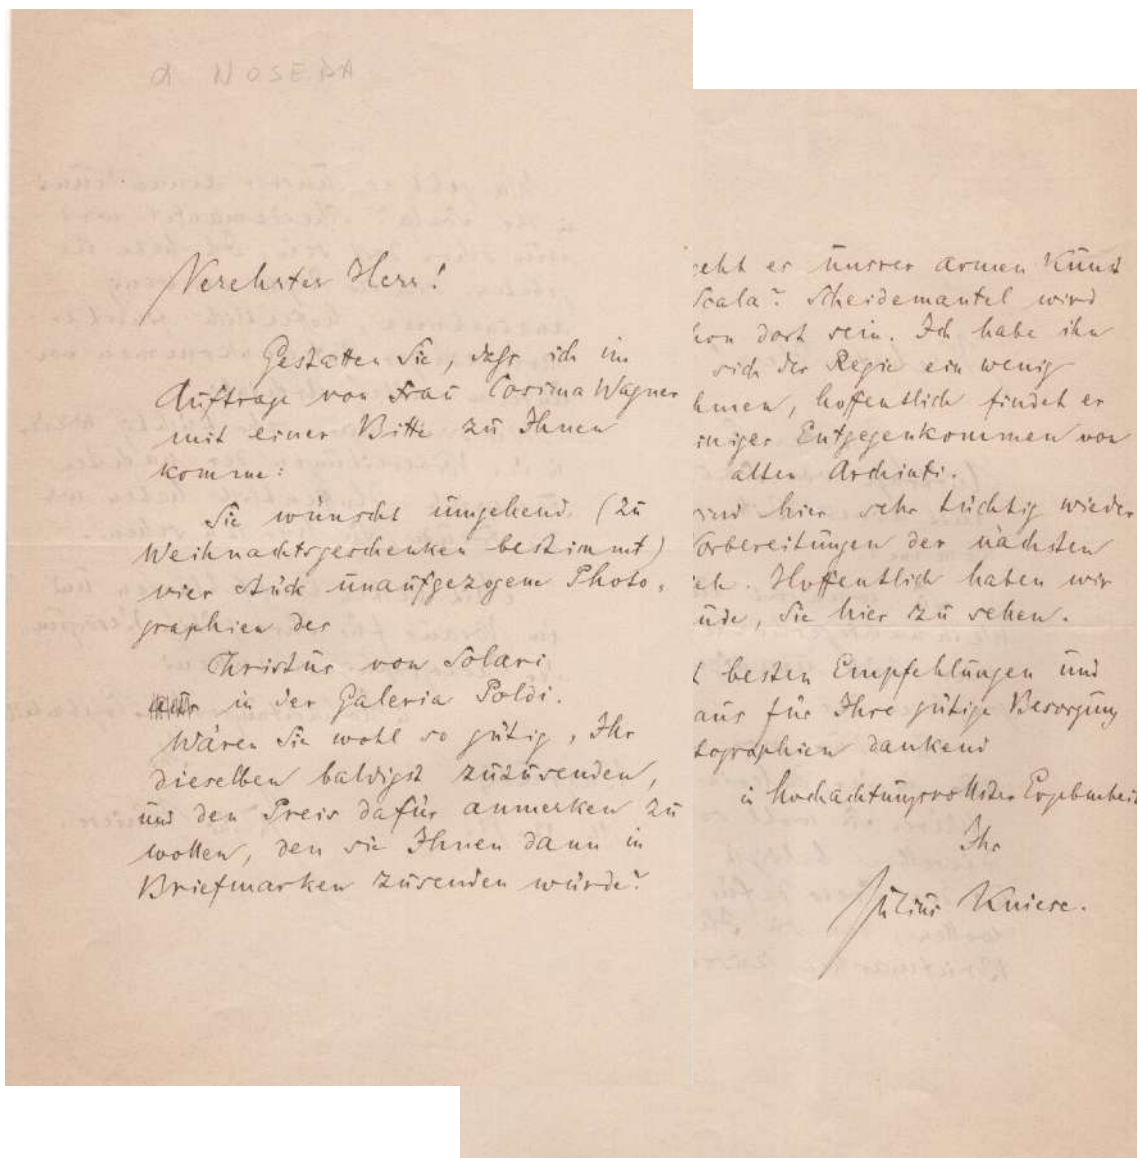 a NOSEDA
Verehrter Herr!
Gestatten Sie, dass ich im
Auftrage von Frau Cosima Wagner
mit einer Bitte zu Ihnen
komme:
Sie wünscht umgehend (zu
Weihnachtsgeschenken bestimmt)
vier Stück unaufgezogene Photo-
graphien des
Christus von Solari
in der Galeria Poldi.
Wären Sie wohl so gütig, Ihr
dieselben baldigst zuzusenden,
und den Preis dafür anmerken zu
wollen, den sie Ihnen dann in
Briefmarken zusenden würde?
geht es unsrer armen Kunst
Scala? Scheidemantel wird
hon dort sein. Ich habe ihn
sich der Regie ein wenig
hmen, hoffentlich findet er
iniges Entgegenkommen von
alten Archinti.
sind hier sehr tüchtig wieder
Vorbereitungen der nächsten
. Hoffentlich haben wir
ude, Sie hier zu sehen.
t besten Empfehlungen und
aus für Ihre gütige Besorgung
tographien dankend
in hochachtungsvollster Ergebenheit
Ihr
Julius Kniese.